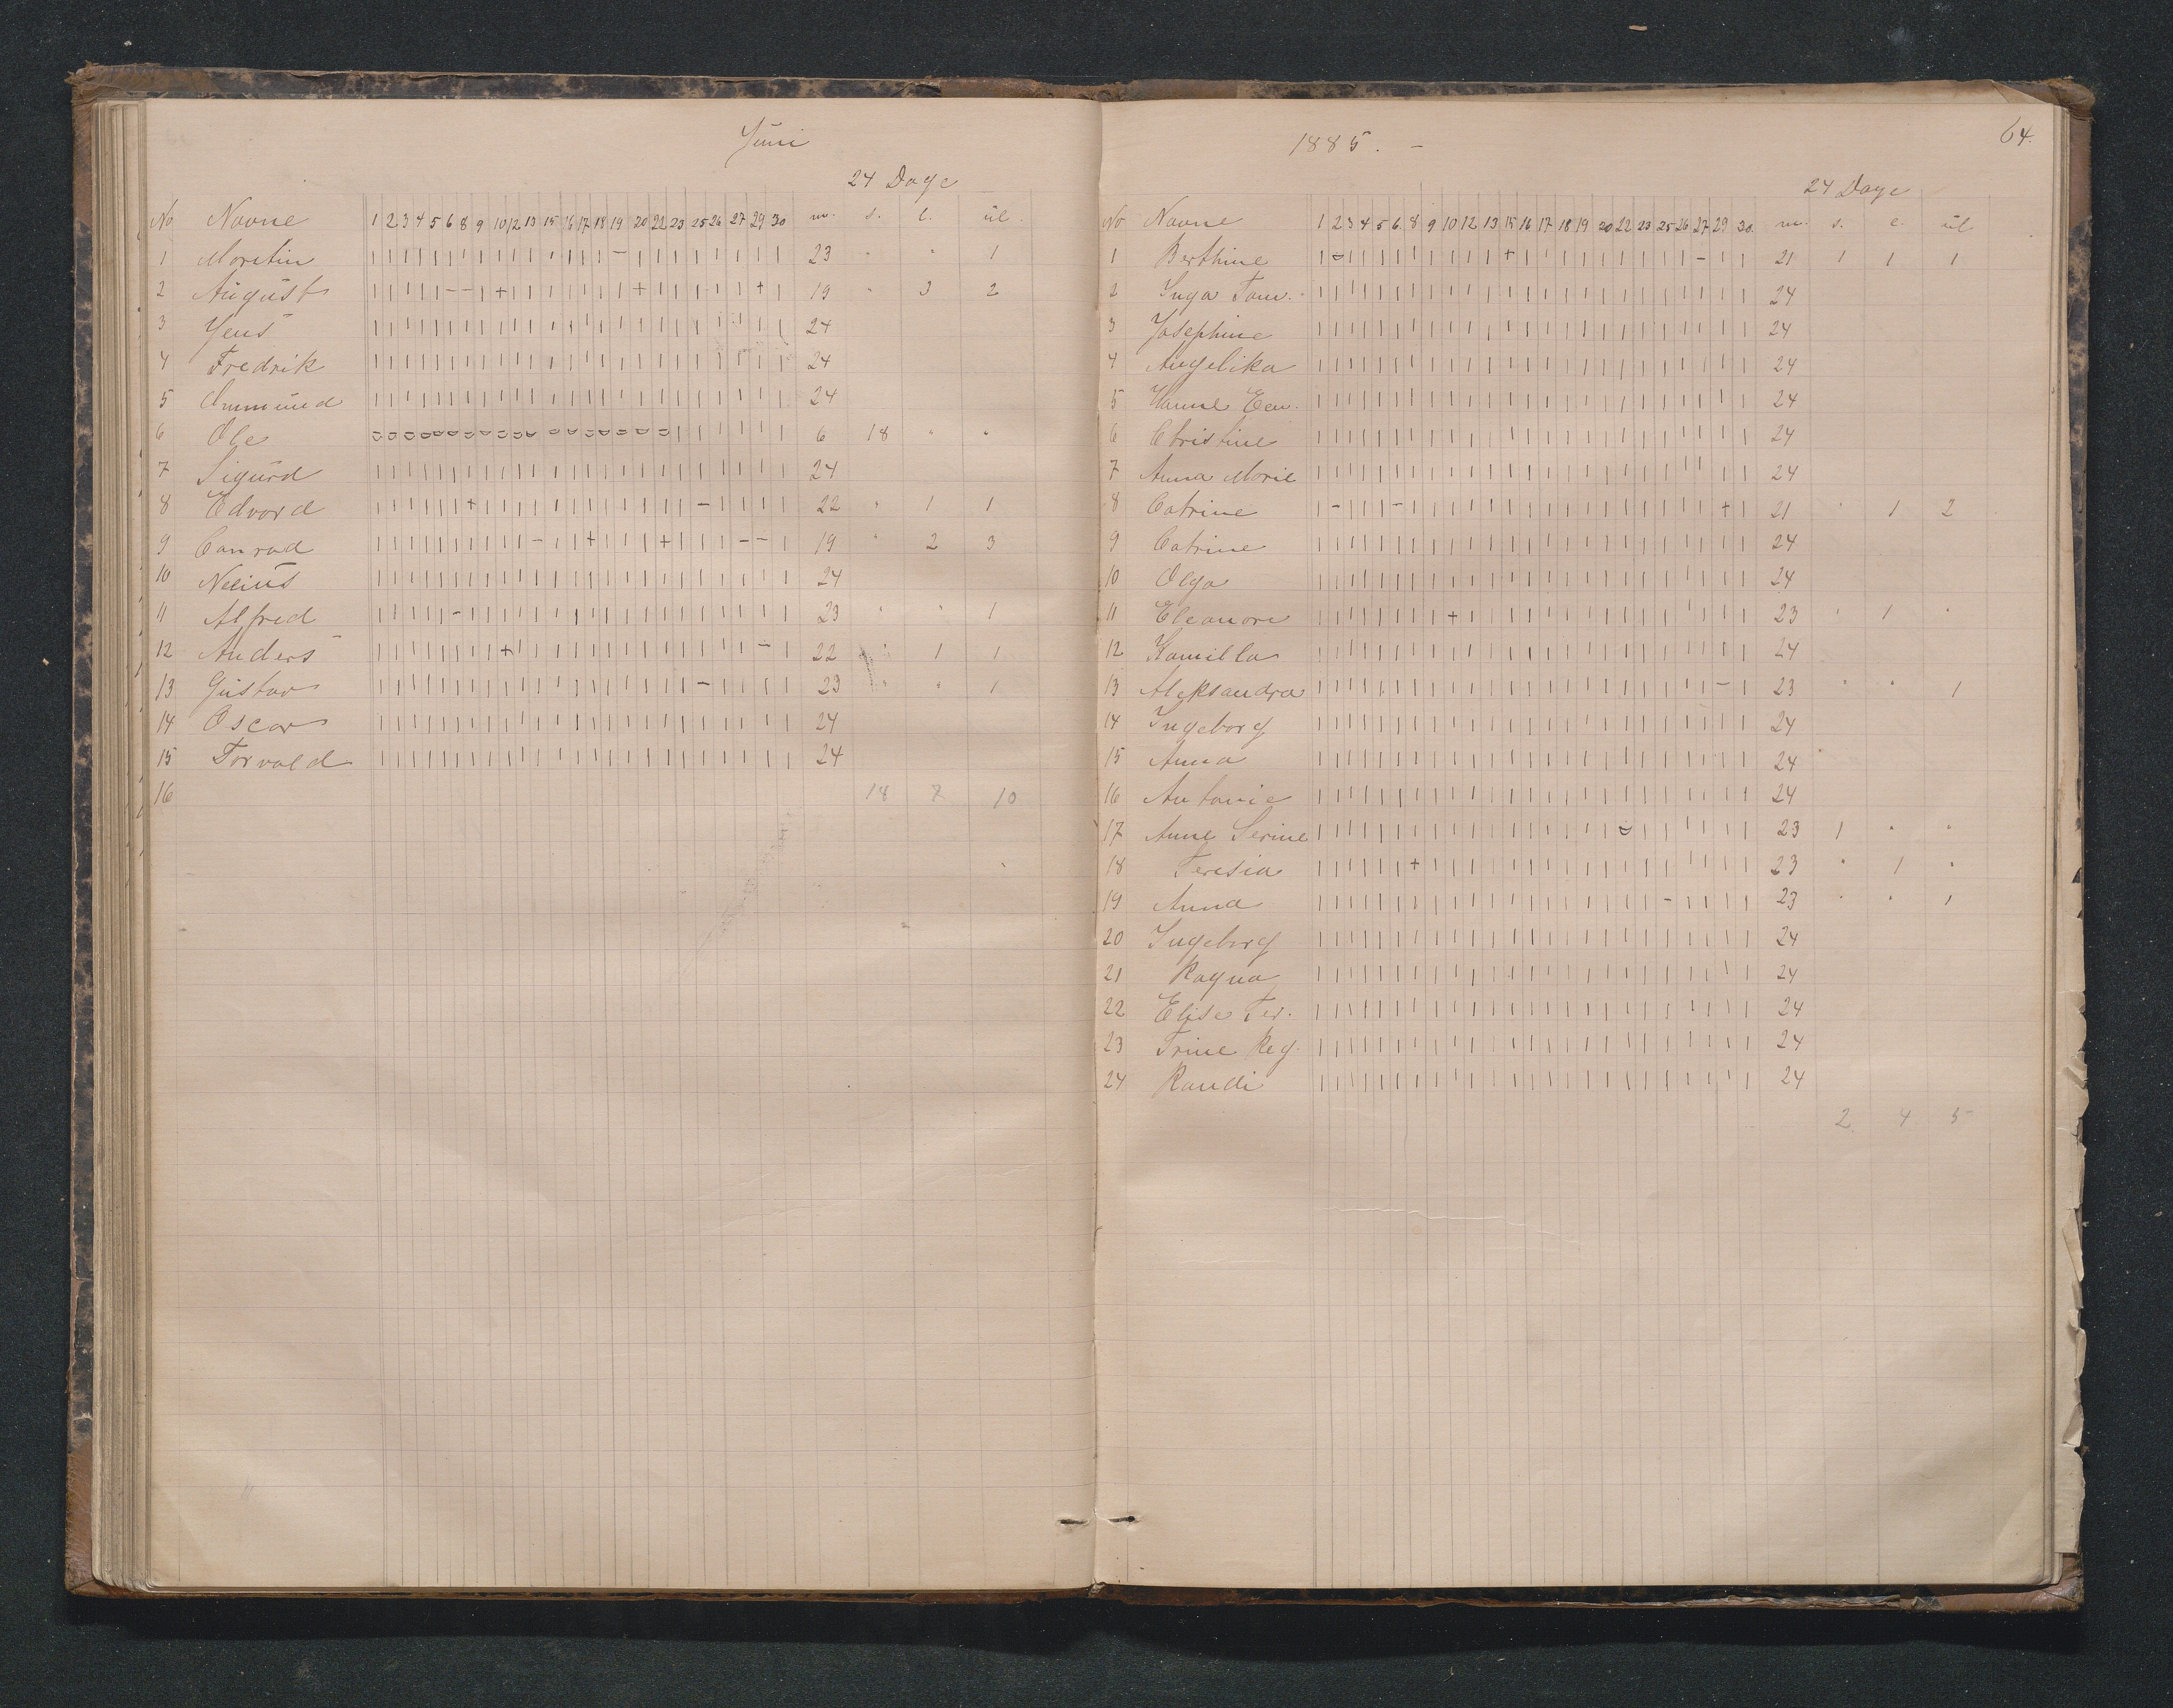 Juni
24 Dage
No Navne 1 2 3 4 5 6 8 9 10 12 13 15 16 17 18 19 20 22 23 25 26 27 29 30 m. s. l. ul.
1 Moritin | | | | | | | | | | | | | | | – | | | | | | | | 23 " " 1
2 August | | | | | – – | + | | | | | | | + | | | | | + | 19 " 3 2
3 Jens | | | | | | | | | | | | | | | | | | | | | | | | 24
4 Fredrik | | | | | | | | | | | | | | | | | | | | | | | | 24
5 Ammund | | | | | | | | | | | | | | | | | | | | | | | | 24
6 Ole o o o o o o o o o o o o o o o o o o | | | | | | 6 18 " "
7 Sigurd | | | | | | | | | | | | | | | | | | | | | | | | 24
8 Edvard | | | | | | + | | | | | | | | | | | | – | | | | 22 " 1 1
9 Conrad | | | | | | | | | | – | | + | | | + | | | – – | 19 " 2 3
10 Nelius | | | | | | | | | | | | | | | | | | | | | | | | 24
11 Alfred | | | | | – | | | | | | | | | | | | | | | | | | 23 " " 1
12 Anders | | | | | | | | + | | | | | | | | | | | | | – | 22 " 1 1
13 Gustav | | | | | | | | | | | | | | | | | | | – | | | | 23 " " 1
14 Oscar | | | | | | | | | | | | | | | | | | | | | | | | 24
15 Torvald | | | | | | | | | | | | | | | | | | | | | | | | 24
16 18 7 10
1885. –
64.
24 Dage
No Navne 1 2 3 4 5 6 8 9 10 12 13 15 16 17 18 19 20 22 23 25 26 27 29 30. m. s. l. ul
1 Berthine | o | | | | | | | | | + | | | | | | | | | – | | 21 1 1 1
2 Inga Tom. | | | | | | | | | | | | | | | | | | | | | | | | 24
3 Josephine | | | | | | | | | | | | | | | | | | | | | | | | 24
4 Angelika | | | | | | | | | | | | | | | | | | | | | | | | 24
5 Hanne | | | | | | | | | | | | | | | | | | | | | | | | 24
6 Christine | | | | | | | | | | | | | | | | | | | | | | | | 24
7 Anna Marie | | | | | | | | | | | | | | | | | | | | | | | | 24
8 Catrine | – | | | – | | | | | | | | | | | | | | | | + | 21 " 1 2
9 Catrine | | | | | | | | | | | | | | | | | | | | | | | | 24
10 Olga | | | | | | | | | | | | | | | | | | | | | | | | 24
11 Eleanore | | | | | | | | + | | | | | | | | | | | | | | | 23 " 1 "
12 Kamilla | | | | | | | | | | | | | | | | | | | | | | | | 24
13 Aleksandra | | | | | | | | | | | | | | | | | | | | | | – | 23 " " 1
14 Ingeborg | | | | | | | | | | | | | | | | | | | | | | | | 24
15 Anna | | | | | | | | | | | | | | | | | | | | | | | | 24
16 Antonie | | | | | | | | | | | | | | | | | | | | | | | | 24
17 Anne Serine | | | | | | | | | | | | | | | | | o | | | | | | 23 1 " "
18 Teresia | | | | | | + | | | | | | | | | | | | | | | | | 23 " 1 "
19 Anna | | | | | | | | | | | | | | | | | | | – | | | | 23 " " 1
20 Ingeborg | | | | | | | | | | | | | | | | | | | | | | | | 24
21 Ragna | | | | | | | | | | | | | | | | | | | | | | | | 24
22 Elise Ter. | | | | | | | | | | | | | | | | | | | | | | | | 24
23 Trine Reg. | | | | | | | | | | | | | | | | | | | | | | | | 24
24 Randi | | | | | | | | | | | | | | | | | | | | | | | | 24
2 4 5